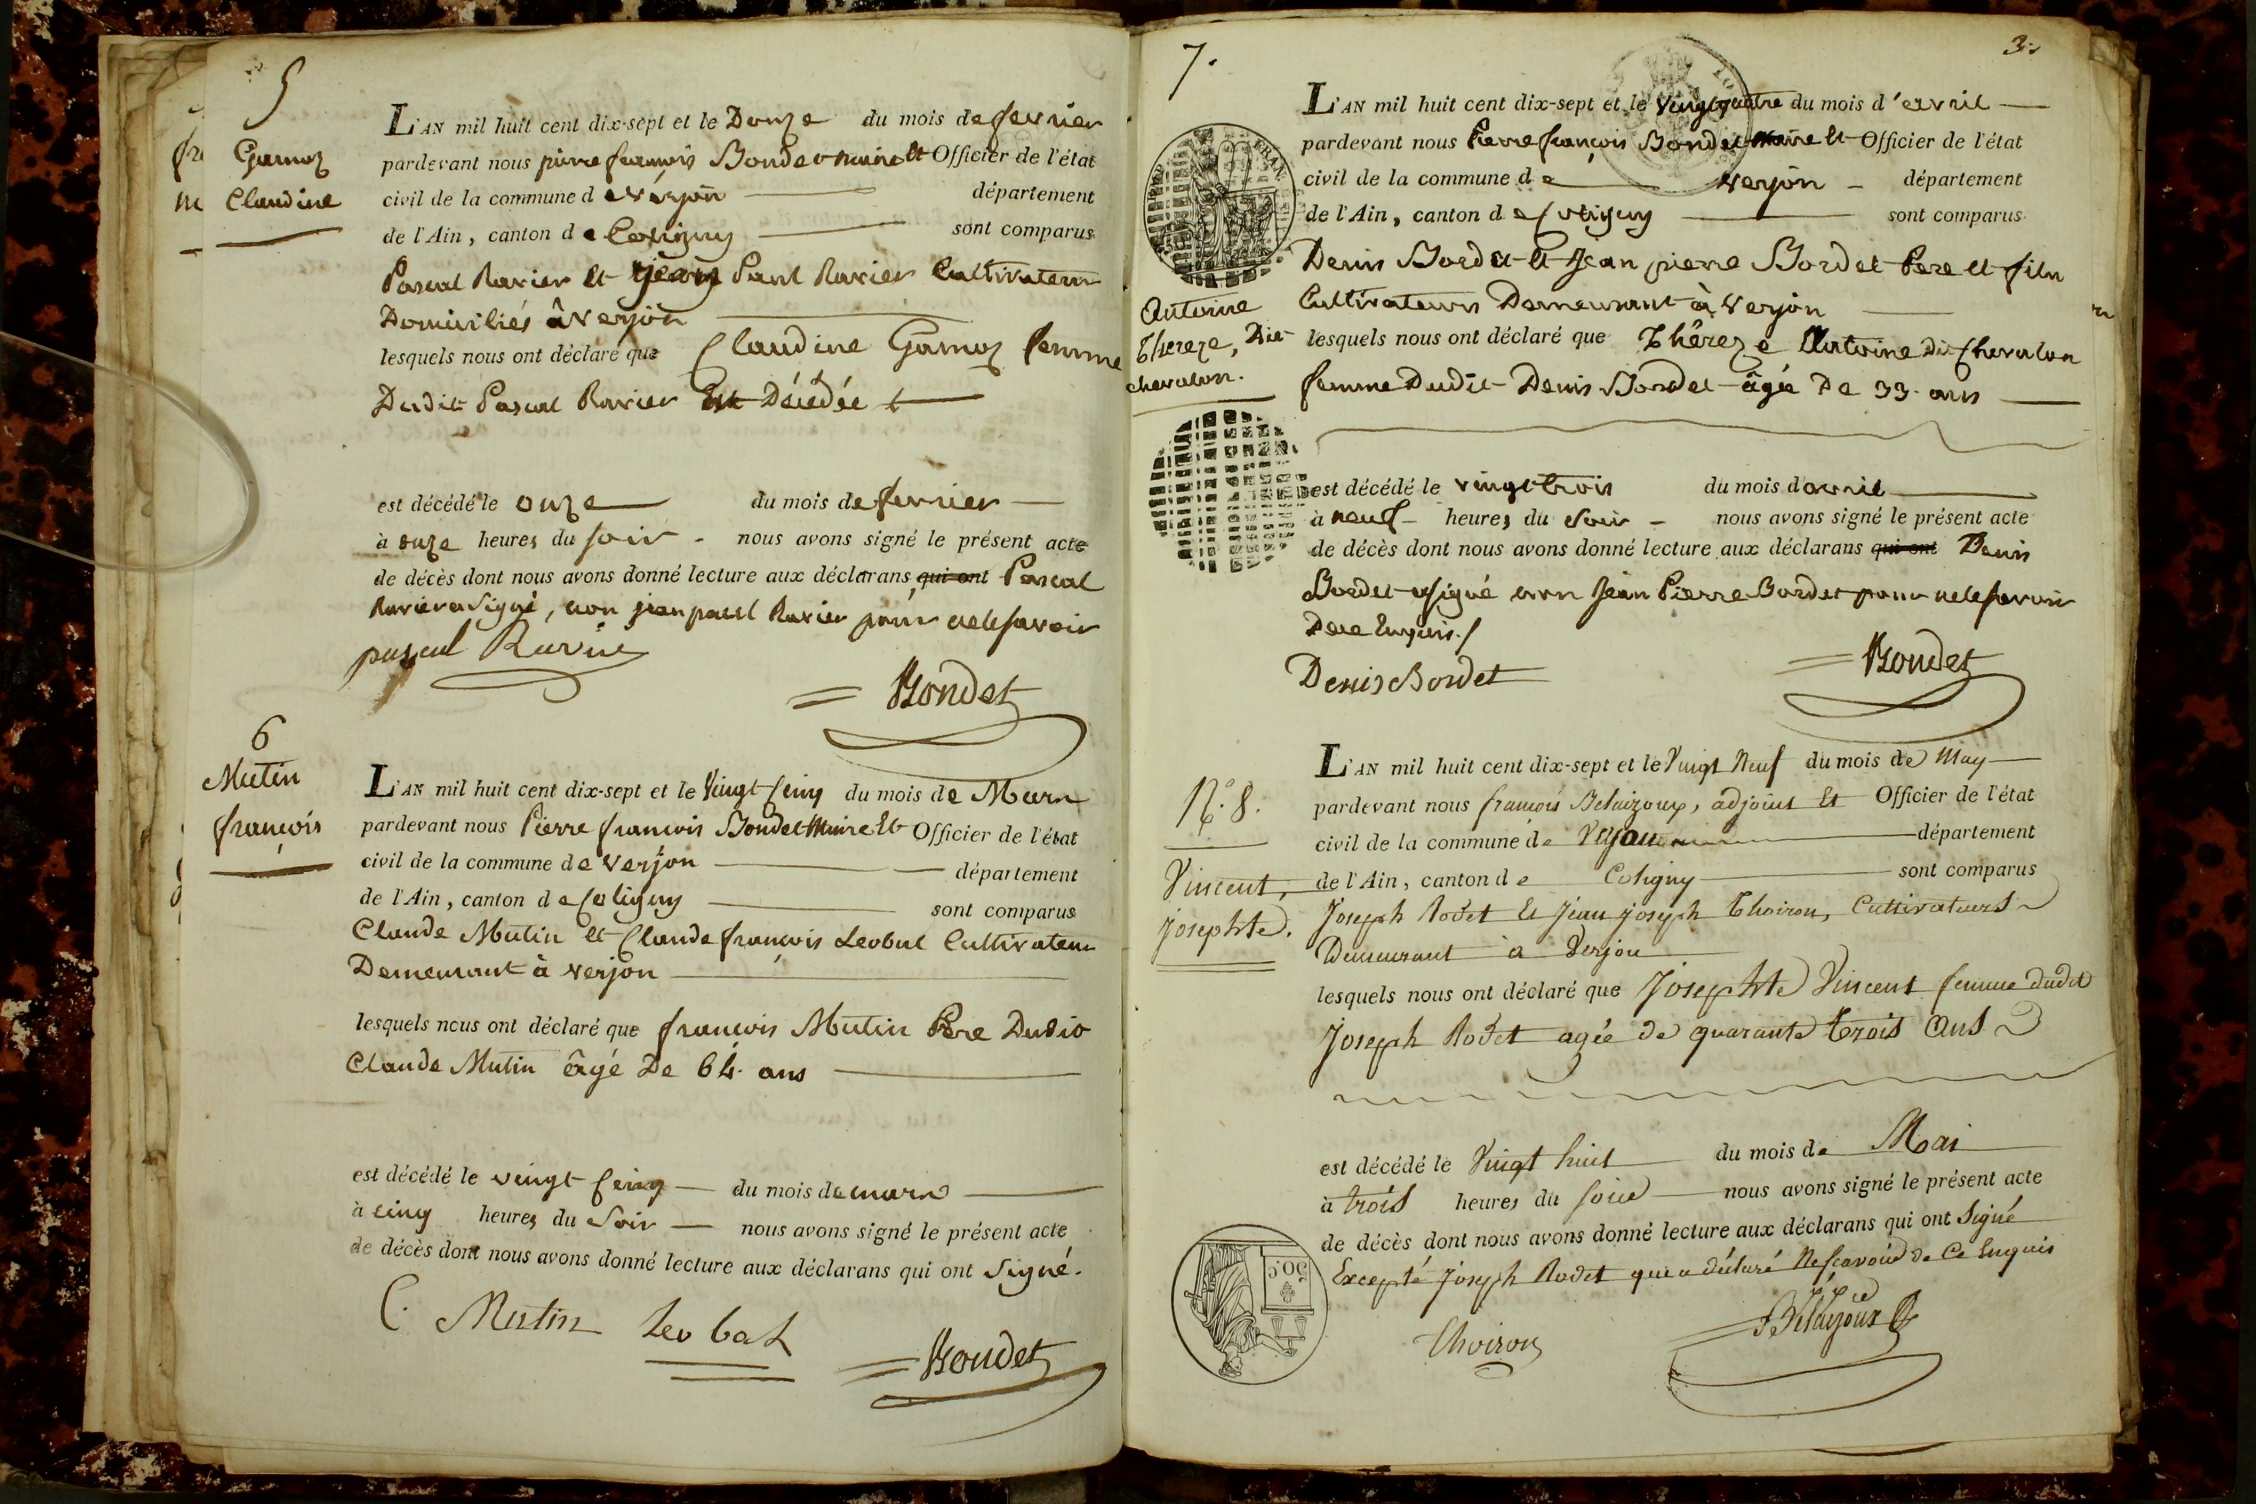 5
Gamoz
Claudine
L'AN mil huit cent dix-sept et le Douze du mois de fevrier
pardevant nous pierre françois Bondet maire Et Officier de l'état
civil de la commune de verjon département
de l'Ain, canton de Coligny sont comparus
Pascal Ravier Et jean Paul Ravier Cultivateurs
Domiciliés à verjon
lesquels nous ont déclaré que Claudine Gamoz femme
Dudit Pascal Ravier Est Décédée
est décédé le onze du mois de fevrier
à onze heures du soir - nous avons signé le présent acte
de décès dont nous avons donné lecture aux déclarans qui ont Pascal
Ravier a signé, non jean paul Ravier pour ne le savoir
pascal Ravier
Bondet
6
Mutin
françois
L'AN mil huit cent dix-sept et le Vingt Cinq du mois de Mars
pardevant nous Pierre françois Bondet Maire Et Officier de l'état
civil de la commune de verjon département
de l'Ain, canton de Coligny sont comparus
Claude Mutin et Claude françois Leobal Cultivateurs
Demeurant à verjon
lesquels nous ont déclaré que françois Mutin Pere Dudit
Claude Mutin âgé De 64. ans
est décédé le vingt Cinq du mois de mars
à cinq heures du Soir nous avons signé le présent acte
de décès dont nous avons donné lecture aux déclarans qui ont signé.
C. Mutin Leobal
Bondet
7.
3
Antoine
Thereze, Dit
chevalon.
L'AN mil huit cent dix-sept et le vingt quatre du mois d'avril
pardevant nous Pierre françois Bondet maire Et Officier de l'état
civil de la commune de verjon département
de l'Ain, canton de Coligny sont comparus
Denis Bordet Et Jean pierre Bordet Pere et fils
Cultivateurs Demeurant à Verjon
lesquels nous ont déclaré que Thérèze Antoine Dit Chevalon
femme Dudit Denis Bordet âgée De 33. ans
est décédé le vingt trois du mois d'avril
à neuf heures du Soir nous avons signé le présent acte
de décès dont nous avons donné lecture aux déclarans qui ont Denis
Bordet a signé non Jean Pierre Bordet pour ne le savoir
De ce Enquis./
Denis Bordet
Bondet
N.º 8.
Vincent,
Josephte.
L'AN mil huit cent dix-sept et le Vingt Neuf du mois de May
pardevant nous françois Beluizoux, adjoint Et Officier de l'état
civil de la commune de Verjon département
de l'Ain, canton de Coligny sont comparus
Joseph Rodet Et Jean joseph Thoiron, Cultivateurs
Demeurant à Verjon
lesquels nous ont déclaré que Josephte Vincent femme dudit
Joseph Rodet agée de quarante trois Ans
est décédé le Vingt huit du mois de Mai
à trois heures du soir nous avons signé le présent acte
de décès dont nous avons donné lecture aux déclarans qui ont Signé
Excepté joseph Rodet qui a déclaré Ne scavoir de Ce Enquis
50.C
Thoiron